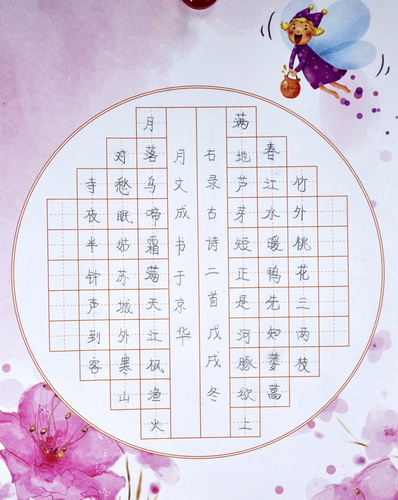 竹外桃花三两枝
春江水暖鸭先知蒌蒿
满地芦芽短正是河豚欲上
右录古诗二首戊戌冬
月文成书于京华
月落乌啼霜满天江枫渔火
对愁眠姑苏城外寒山
寺夜半钟声到客